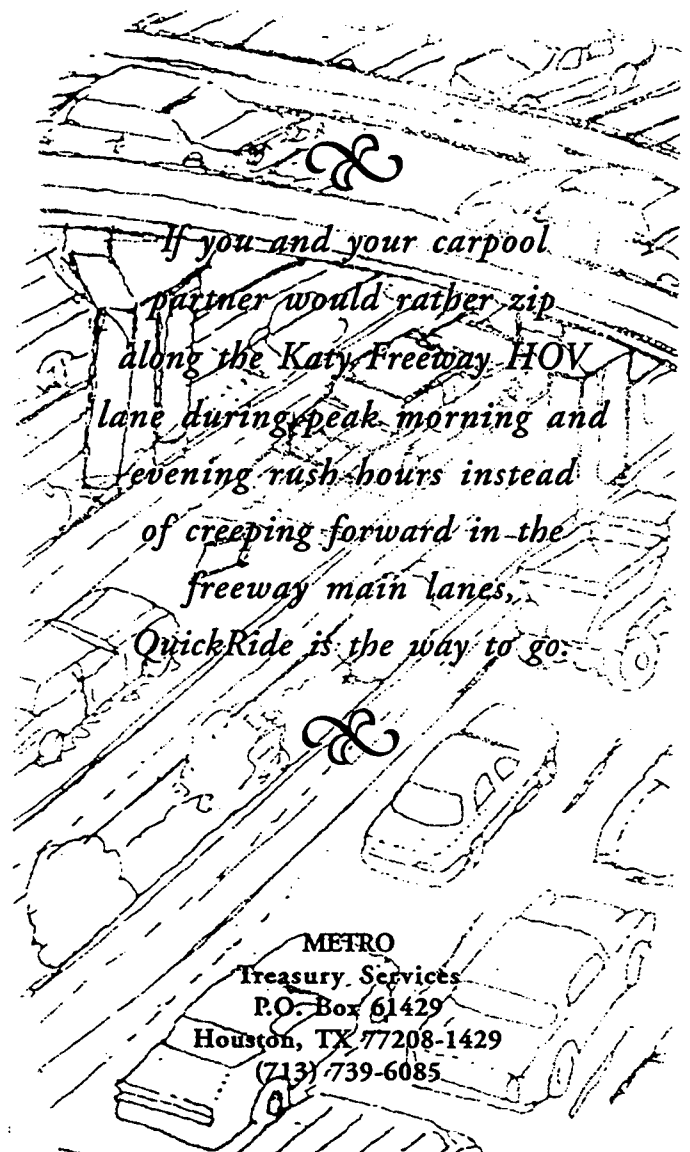 If you and your carpool
partner would rather zip
along the Katy Freeway HOV
lane during peak morning and
evening rush hours instead
of creeping forward in the
freeway main lanes,
QuickRide is the way to go.
METRO
Treasury Services
P.O. Box 61429
Houston, TX 77208-1429
(713) 739-6085